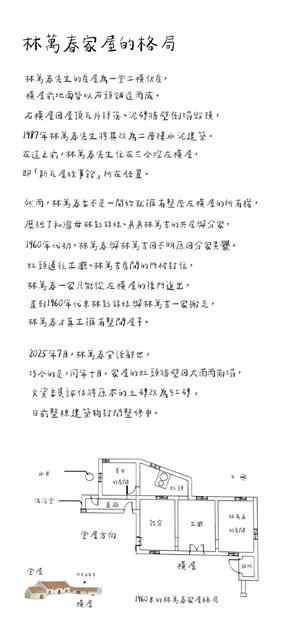 林萬春家屋的格局
林萬春先生的房屋為一堂二橫伙房,
橫屋前地面皆以石頭鋪造而成。
右橫屋因屋頂瓦片掉落、泥磚牆壁倒塌毀損,
1987年林萬春先生將其改為二層樓水泥建築。
在這之前,林萬春先生住在三合院左橫屋,
即「新瓦屋故事館」所在位置。
然而,林萬春並不是一開始就擁有整座左橫屋的所有權,
歷經了和嬸母林彭妹妹、弟弟林萬吉的共居與分家,
1960年代初,林萬春與林萬吉因不明原因分家異爨。
灶頭通往正廳、林萬吉房間的門被封住,
林萬春一家只能從左橫屋的後門進出,
直到1960年代末林彭妹妹與林萬吉一家搬走,
林萬春才真正擁有整間屋子。
2025年7月,林萬春安詳辭世,
巧合的是,同年十月,家屋的灶頭牆壁因大雨而崩塌,
文資委員評估將原本的土磚改為紅磚,
目前整棟建築物封閉整修中。
水井
洗浴堂
堂屋方向
長女
的房間
灶頭
走廊
飯堂
正廳
林萬春
的房間
橫屋
堂屋
橫屋
1960末的林萬春家屋格局